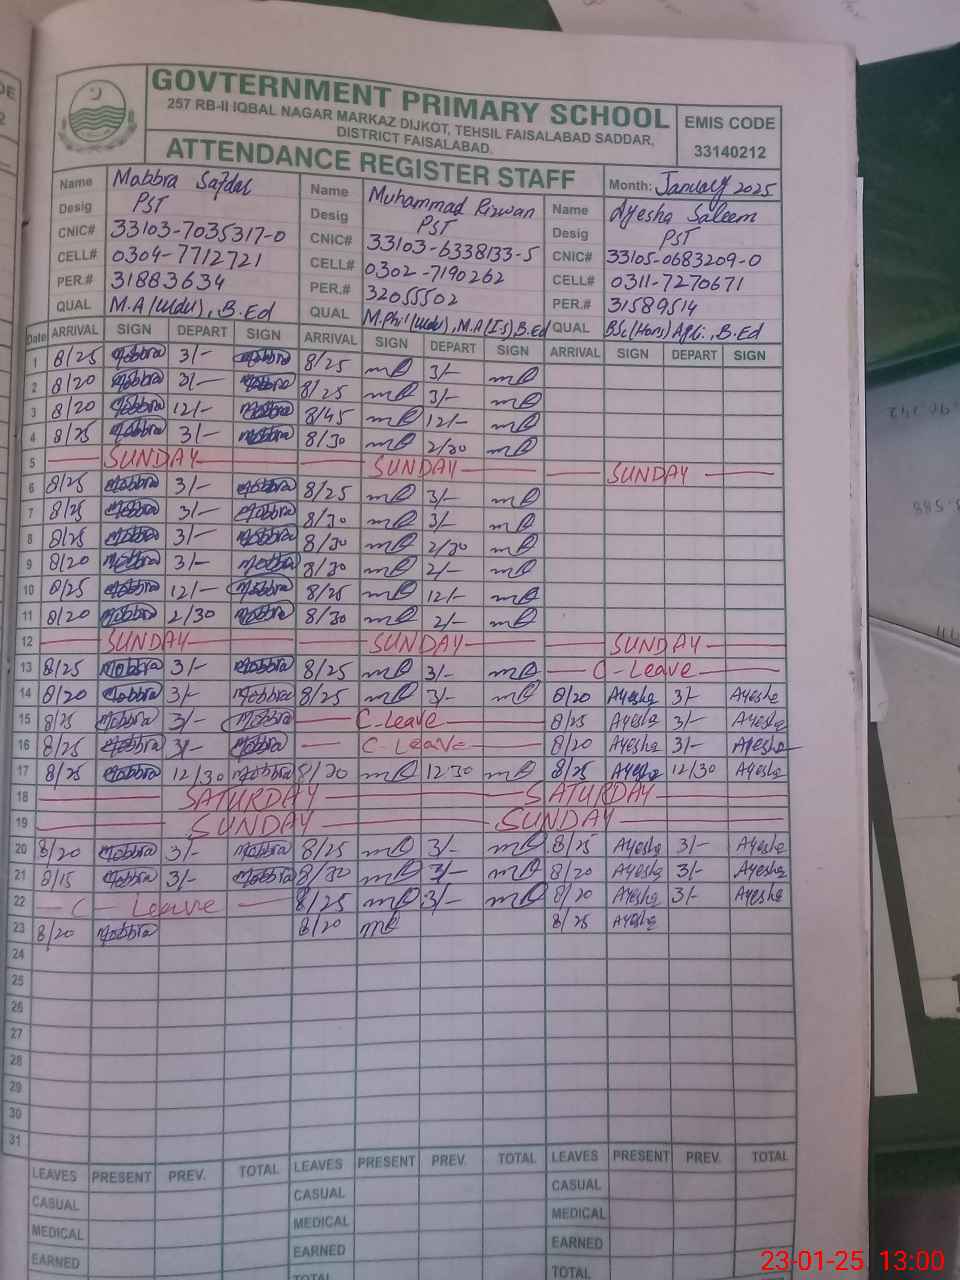 GOVTERNMENT PRIMARY SCHOOL
257 RB-II IQBAL NAGAR MARKAZ DIJKOT, TEHSIL FAISALABAD SADDAR,
DISTRICT FAISALABAD.
EMIS CODE
33140212
ATTENDANCE REGISTER STAFF
Month: January 2025
Name Mabbra Safdar
Desig PST
CNIC# 33103-7035317-0
CELL# 0304-7712721
PER.# 31883634
QUAL M.A (Urdu), B.Ed
Name Muhammad Rizwan
Desig PST
CNIC# 33103-6338133-5
CELL# 0302-7190262
PER.# 32055502
QUAL M.Phil (Urdu), M.A (I-S) B.Ed
Name Ayesha Saleem
Desig PST
CNIC# 33105-0683209-0
CELL# 0311-7270671
PER.# 31589514
QUAL BSc (Hons) Agri., B.Ed
Date ARRIVAL SIGN DEPART SIGN ARRIVAL SIGN DEPART SIGN ARRIVAL SIGN DEPART SIGN
1 8/25 Mabbra 3/- Mabbra 8/25 3/-
2 8/20 Mabbra 3/- Mabbra 8/25 3/-
3 8/20 Mabbra 12/- Mabbra 8/45 12/-
4 8/25 Mabbra 3/- Mabbra 8/30 2/30
5 SUNDAY SUNDAY SUNDAY
6 8/25 Mabbra 3/- Mabbra 8/25 3/-
7 8/25 Mabbra 3/- Mabbra 8/30 3/-
8 8/25 Mabbra 3/- Mabbra 8/30 2/30
9 8/20 Mabbra 3/- Mabbra 8/30 2/-
10 8/25 Mabbra 12/- Mabbra 8/25 12/-
11 8/20 Mabbra 2/30 Mabbra 8/30 2/-
12 SUNDAY SUNDAY SUNDAY
13 8/25 Mabbra 3/- Mabbra 8/25 3/- C-Leave
14 8/20 Mabbra 3/- Mabbra 8/25 3/- 8/20 Ayesha 3/- Ayesha
15 8/25 Mabbra 3/- Mabbra C-Leave 8/25 Ayesha 3/- Ayesha
16 8/25 Mabbra 3/- Mabbra C-Leave 8/20 Ayesha 3/- Ayesha
17 8/25 Mabbra 12/30 Mabbra 8/20 12 30 8/25 Ayesha 12/30 Ayesha
18 SATURDAY SATURDAY
19 SUNDAY SUNDAY
20 8/20 Mabbra 3/- Mabbra 8/25 3/- 8/25 Ayesha 3/- Ayesha
21 8/15 Mabbra 3/- Mabbra 8/30 3/- 8/20 Ayesha 3/- Ayesha
22 C-Leave 8/25 3/- 8/20 Ayesha 3/- Ayesha
23 8/20 Mabbra 8/20 8/25 Ayesha
24
25
26
27
28
29
30
31
LEAVES PRESENT PREV. TOTAL LEAVES PRESENT PREV. TOTAL LEAVES PRESENT PREV. TOTAL
CASUAL CASUAL CASUAL
MEDICAL MEDICAL MEDICAL
EARNED EARNED EARNED
TOTAL TOTAL
23-01-25 13:00